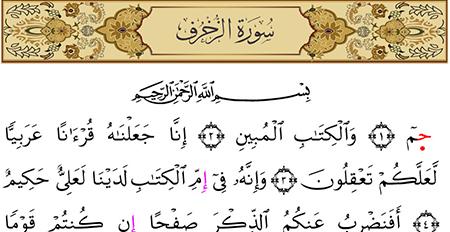 سُورَة الزُّخْرُف
بِسْمِ ٱللَّهِ ٱلرَّحْمَٰنِ ٱلرَّحِيمِ
حمٓ ﴿١﴾ وَٱلْكِتَٰبِ ٱلْمُبِينِ ﴿٢﴾ إِنَّا جَعَلْنَٰهُ قُرْءَٰنًا عَرَبِيًّا
لَّعَلَّكُمْ تَعْقِلُونَ ﴿٣﴾ وَإِنَّهُۥ فِىٓ إِمِّ ٱلْكِتَٰبِ لَدَيْنَا لَعَلِىٌّ حَكِيمٌ
﴿٤﴾ أَفَنَضْرِبُ عَنكُمُ ٱلذِّكْرَ صَفْحًا إِن كُنتُمْ قَوْمًا